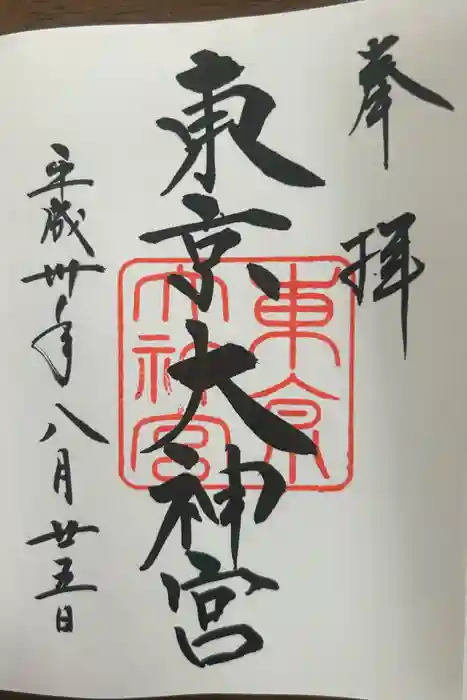 奉拝
東京大神宮
東京大神宮
平成卅年八月廿五日